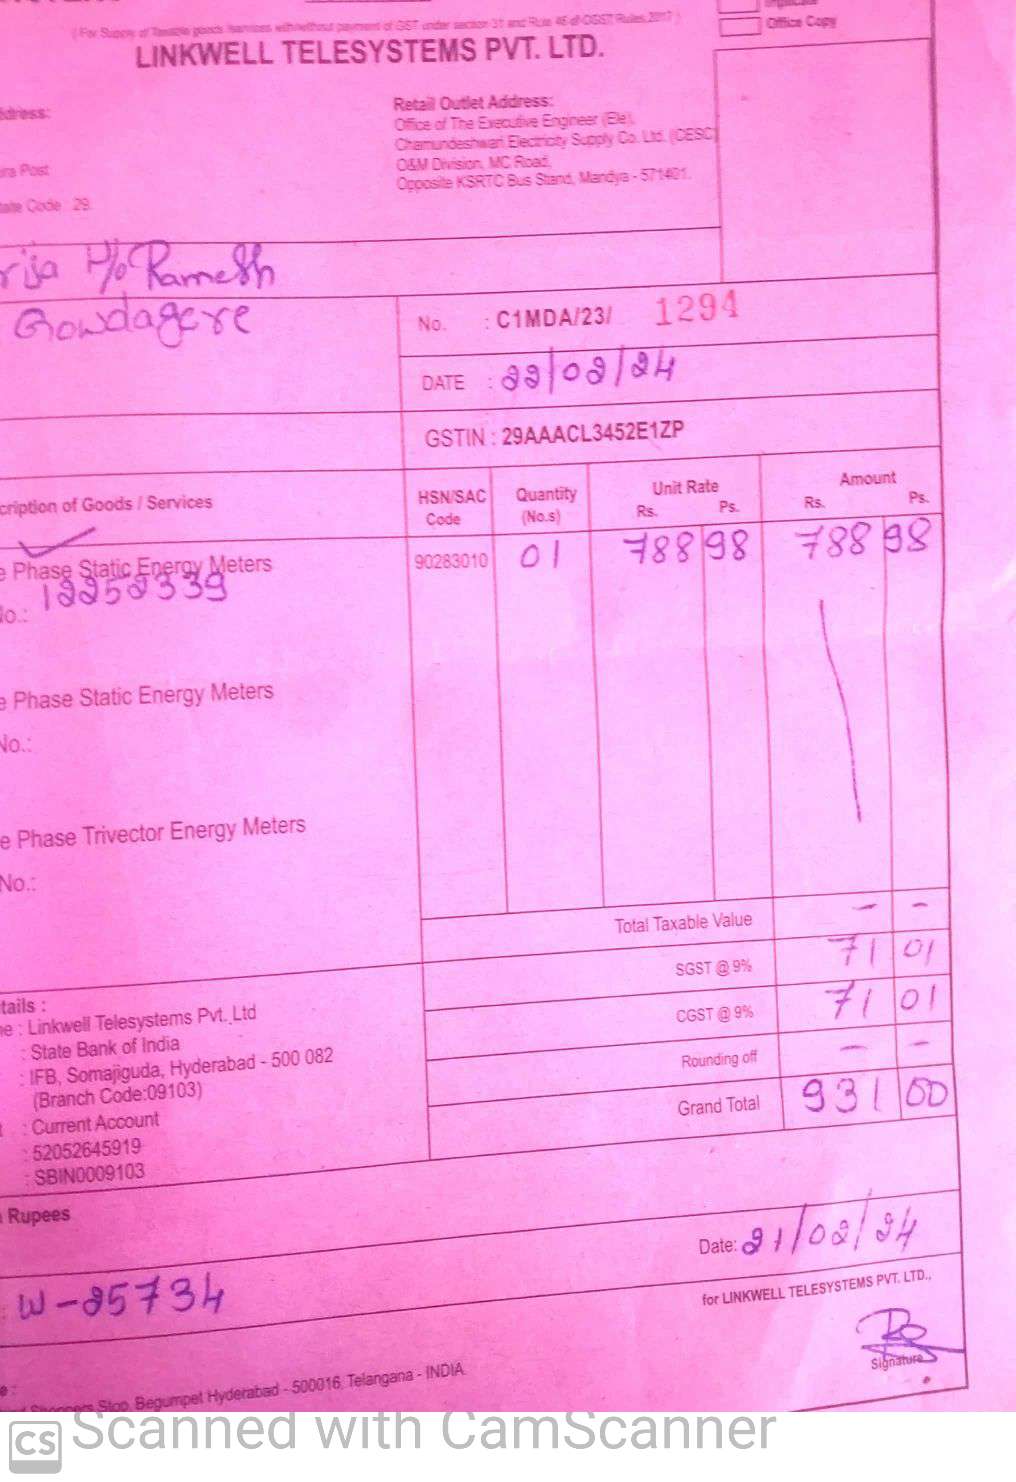 ( For Supply of Taxable goods /services with/without payment of GST under section 31 and Rule 46 of CGST Rules, 2017 )
Office Copy
LINKWELL TELESYSTEMS PVT. LTD.
ddress:
Retail Outlet Address:
Office of The Executive Engineer (Ele),
Chamundeshwari Electricity Supply Co. Ltd. (CESC)
ra Post
O&M Division, MC Road,
Opposite KSRTC Bus Stand, Mandya - 571401.
tate Code : 29.
rija H/o Ramesh
Gowdagere
No. : C1MDA/23/ 1294
DATE : 22/02/24
GSTIN : 29AAACL3452E1ZP
cription of Goods / Services HSN/SAC Code Quantity (No.s) Unit Rate Rs. Ps. Amount Rs. Ps.
e Phase Static Energy Meters 90283010 01 788 98 788 98
No.: 12252339
e Phase Static Energy Meters
No.:
e Phase Trivector Energy Meters
No.:
Total Taxable Value - -
SGST @ 9% 71 01
CGST @ 9% 71 01
Rounding off - -
Grand Total 931 00
tails :
me : Linkwell Telesystems Pvt. Ltd
: State Bank of India
: IFB, Somajiguda, Hyderabad - 500 082
(Branch Code:09103)
t : Current Account
: 52052645919
: SBIN0009103
n Rupees
Date: 21/02/24
: W-25734
for LINKWELL TELESYSTEMS PVT. LTD.,
Signature
e :
Shoppers Stop, Begumpet Hyderabad - 500016, Telangana - INDIA.
CS Scanned with CamScanner